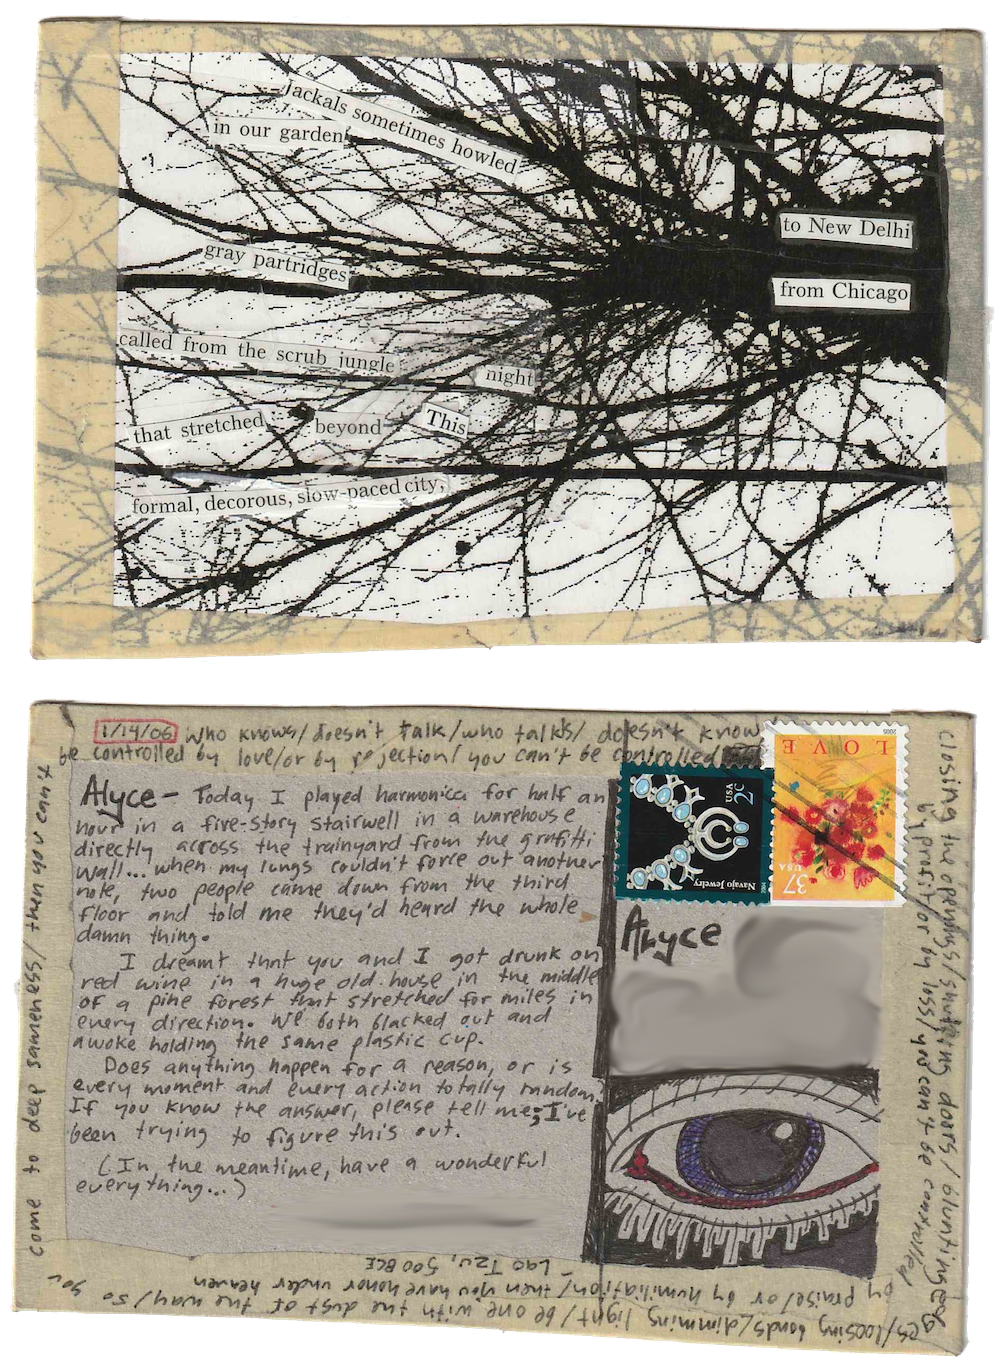 Jackals sometimes howled
in our garden
to New Delhi
gray partridges
from Chicago
called from the scrub jungle
night
that stretched beyond This
formal, decorous, slow-paced city,
1/14/06 Who knows/doesn't talk/who talks/doesn't know
be controlled by love/or by rejection/you can't be controlled
closing the openings/shutting doors/blunting edg
es/loosing bonds/dimming light/be one with the dust of the way/so
you
come to deep sameness/then you can't
by profit/or by loss/you can't be controlled
by praise/or by humiliation/then you have honor under heaven
- Lao Tzu, 500 BCE
Alyce - Today I played harmonica for half an
hour in a five-story stairwell in a warehouse
directly across the trainyard from the grafitti
wall... when my lungs couldn't force out another
note, two people came down from the third
floor and told me they'd heard the whole
damn thing.
I dreamt that you and I got drunk on
red wine in a huge old house in the middle
of a pine forest that stretched for miles in
every direction. We both blacked out and
awoke holding the same plastic cup.
Does anything happen for a reason, or is
every moment and every action totally random.
If you know the answer, please tell me; I've
been trying to figure this out.
(In the meantime, have a wonderful
everything...)
USA 2c
Navajo Jewelry
2004
LOVE
2005
37
USA
Alyce